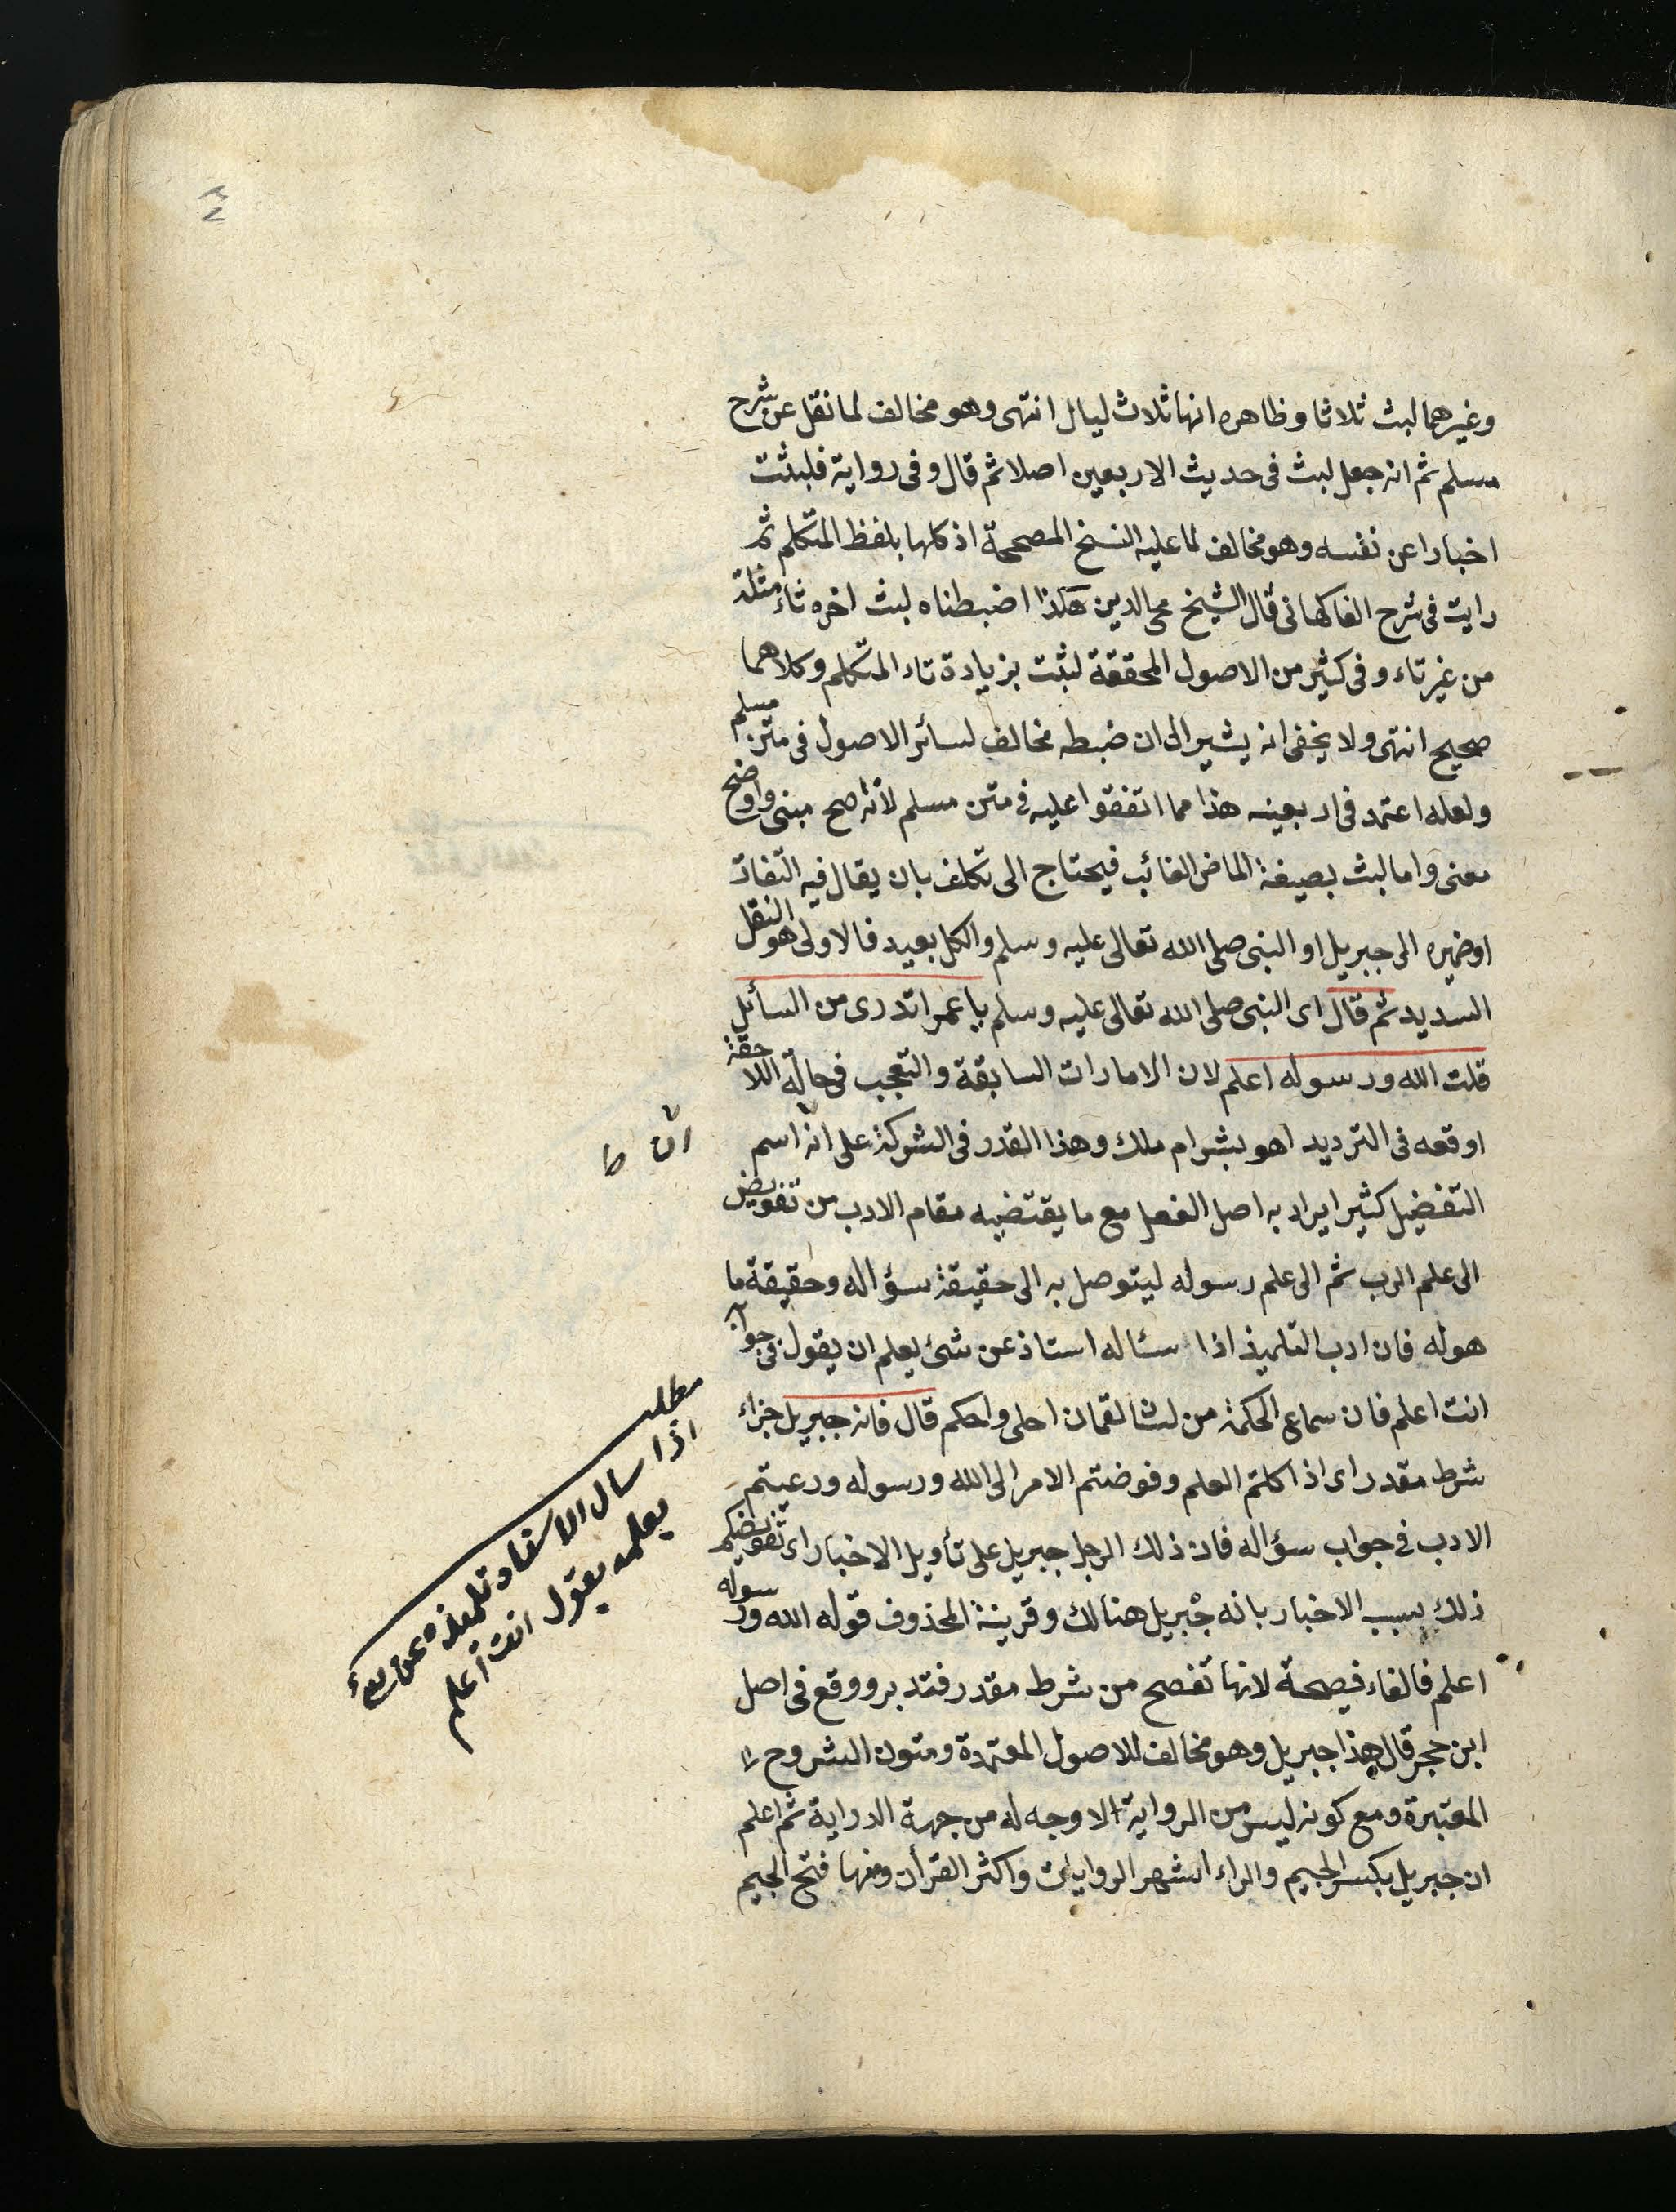 وغيرهما لبث ثلاثا وظاهره انها ثلاث ليال انتهى وهو مخالف لما نقل عن شرح
مسلم ثم انه جعل لبث في حديث الاربعين اصلا ثم قال وفى رواية فلبثت
اخبارا عن نفسه وهو مخالف لما عليه النسخ المصححة اذ كلها بلفظ المتكلم ثم
رايت في شرح الفاكهانى قال الشيخ محى الدين هكذا ضبطناه لبث اخره ثاء مثلثة
من غير تاء وفى كثير من الاصول المحققة لبثت بزيادة تاء المتكلم وكلاهما
صحيح انتهى ولا يخفى انه يشير الى ان ضبطه مخالف لسائر الاصول في متن مسلم
ولعله اعتمد في اربعينه هذا مما اتفقوا عليه في متن مسلم لانه اصح مبنى واوضح
معنى واما لبث بصيغة الماضى الغائب فيحتاج الى تكلف بان يقال فيه التفات
او ضميره الى جبريل او النبى صلى الله تعالى عليه وسلم والكل بعيد فالاولى هو النقل
السديد ثم قال اى النبى صلى الله تعالى عليه وسلم يا عمر اتدرى من السائل
قلت الله ورسوله اعلم لان الامارات السابقة والتعجب في حاله اللاحقة
اوقعه في الترديد اهو بشر ام ملك وهذا القدر في الشركة على ان اسم
التفضيل كثيرا يراد به اصل الفعل مع ما يقتضيه مقام الادب من تفويض
الى علم الرب ثم الى علم رسوله ليتوصل به الى حقيقة سؤاله وحقيقة ما
هوله فان ادب التلميذ اذا سئاله استاذ عن شئ يعلم ان يقول في جوابه
انت اعلم فان سماع الحكمة من لسان لقمان احلى واحكم قال فانه جبريل جزاء
شرط مقدر اى اذا كلتم العلم وفوضتم الامر الى الله ورسوله ورعيتم
الادب في جواب سؤاله فان ذلك الرجل جبريل على تأويل الاخبار اى تفويضكم
ذلك بسبب الاخبار بانه جبريل هنالك وقرينة المحذوف قوله الله ورسوله
اعلم فالفاء فصيحة لانها تفصح من شرط مقدر فتدبر ووقع في اصل
ابن حجر قال هذا جبريل وهو مخالف للاصول المعتمدة ومتون الشروح
المعتبرة ومع كونه ليس من الرواية لا وجه له من جهة الدراية ثم اعلم
ان جبريل بكسر الجيم والراء اشهر الروايات واكثر القرآن ومنها فتح الجيم
ان ط
مطلب
اذا سال الاستاد تلميذه عن شئ
يعلمه يقول انت اعلم